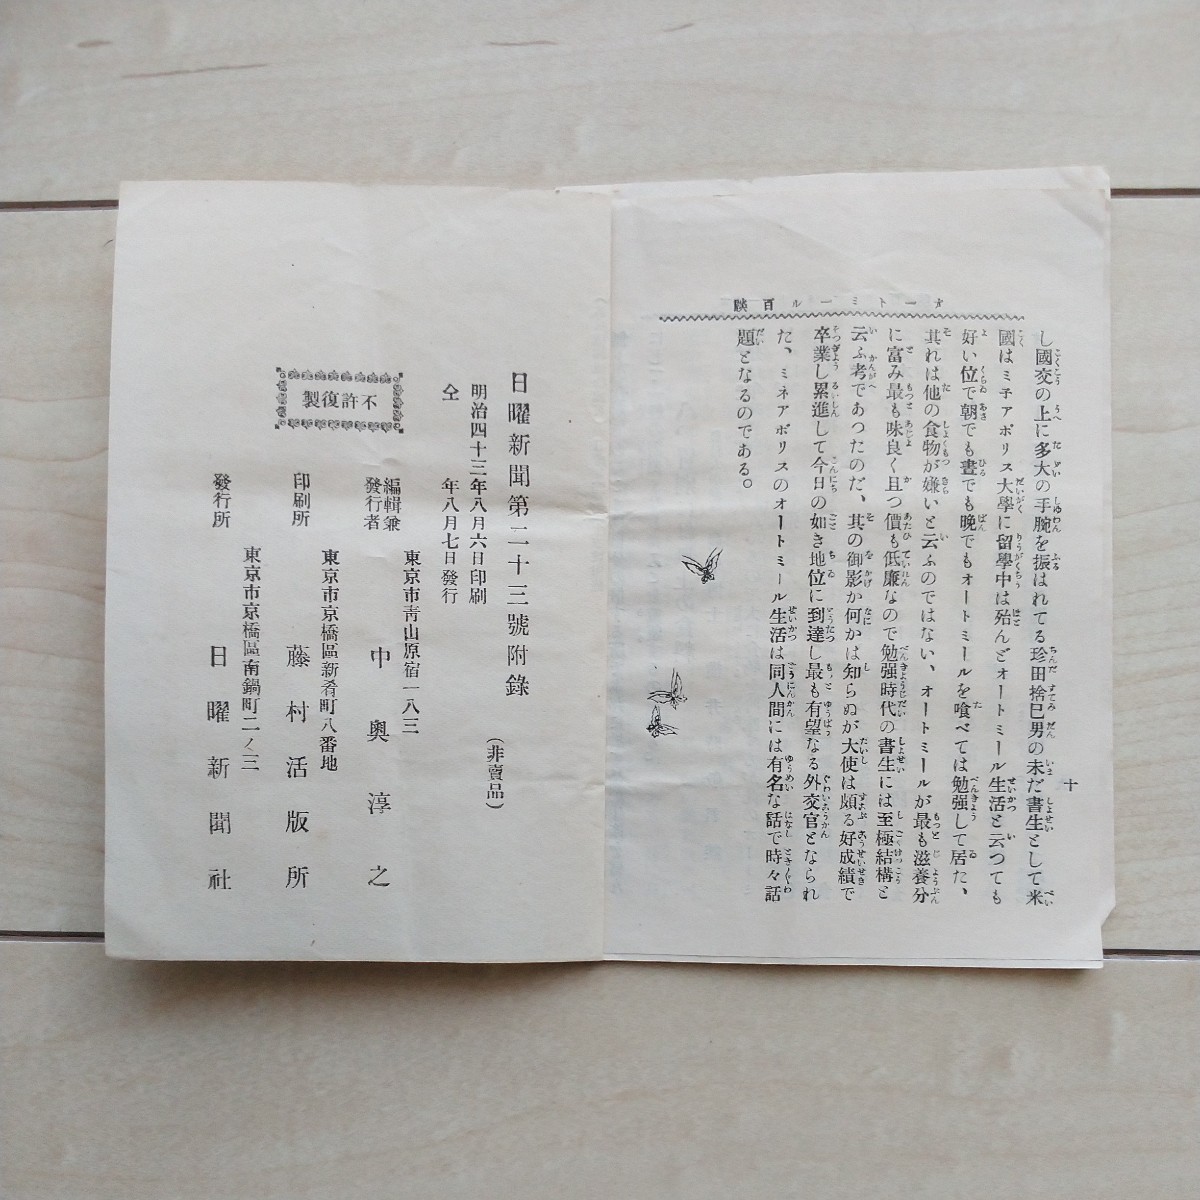 オートミール百談
十
し國交の上に多大の手腕を振はれてる珍田捨巳男の未だ書生として米
國はミ子アポリス大學に留學中は殆んどオートミール生活と云つても
好い位で朝でも晝でも晩でもオートミールを喰べては勉强して居た、
其れは他の食物が嫌いと云ふのではない、オートミールが最も滋養分
に富み最も味良く且つ價も低廉なので勉强時代の書生には至極結構と
云ふ考であつたのだ、其の御影か何かは知らぬが大使は頗る好成績で
卒業し累進して今日の如き地位に到達し最も有望なる外交官となられ
た、ミネアポリスのオートミール生活は同人間には有名な話で時々話
題となるのである。
日曜新聞第二十三號附錄
(非賣品)
明治四十三年八月六日印刷
仝 年八月七日發行
東京市靑山原宿一八三
編輯兼發行者 中奧淳之
東京市京橋區新肴町八番地
印刷所 藤村活版所
東京市京橋區南鍋町二ノ三
發行所 日曜新聞社
不許復製